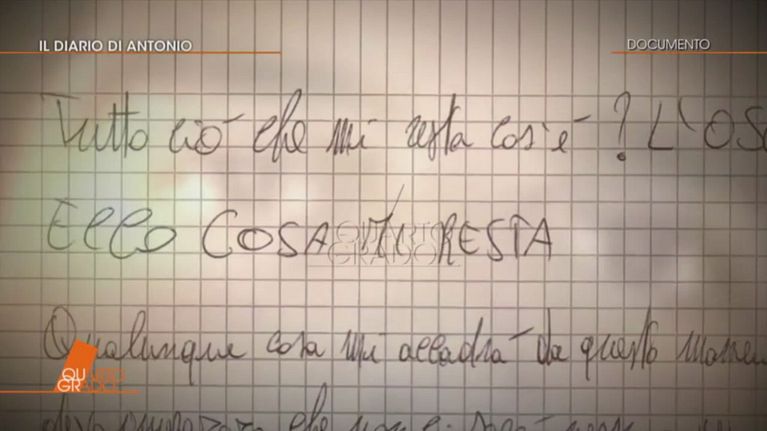 IL DIARIO DI ANTONIO
DOCUMENTO
Tutto ciò che mi resta cos'è? L'OS
ECCO COSA MI RESTA
QUARTO
GRADO
Qualunque cosa mi accadrà da questo momen
QUARTO
GRADO
che non